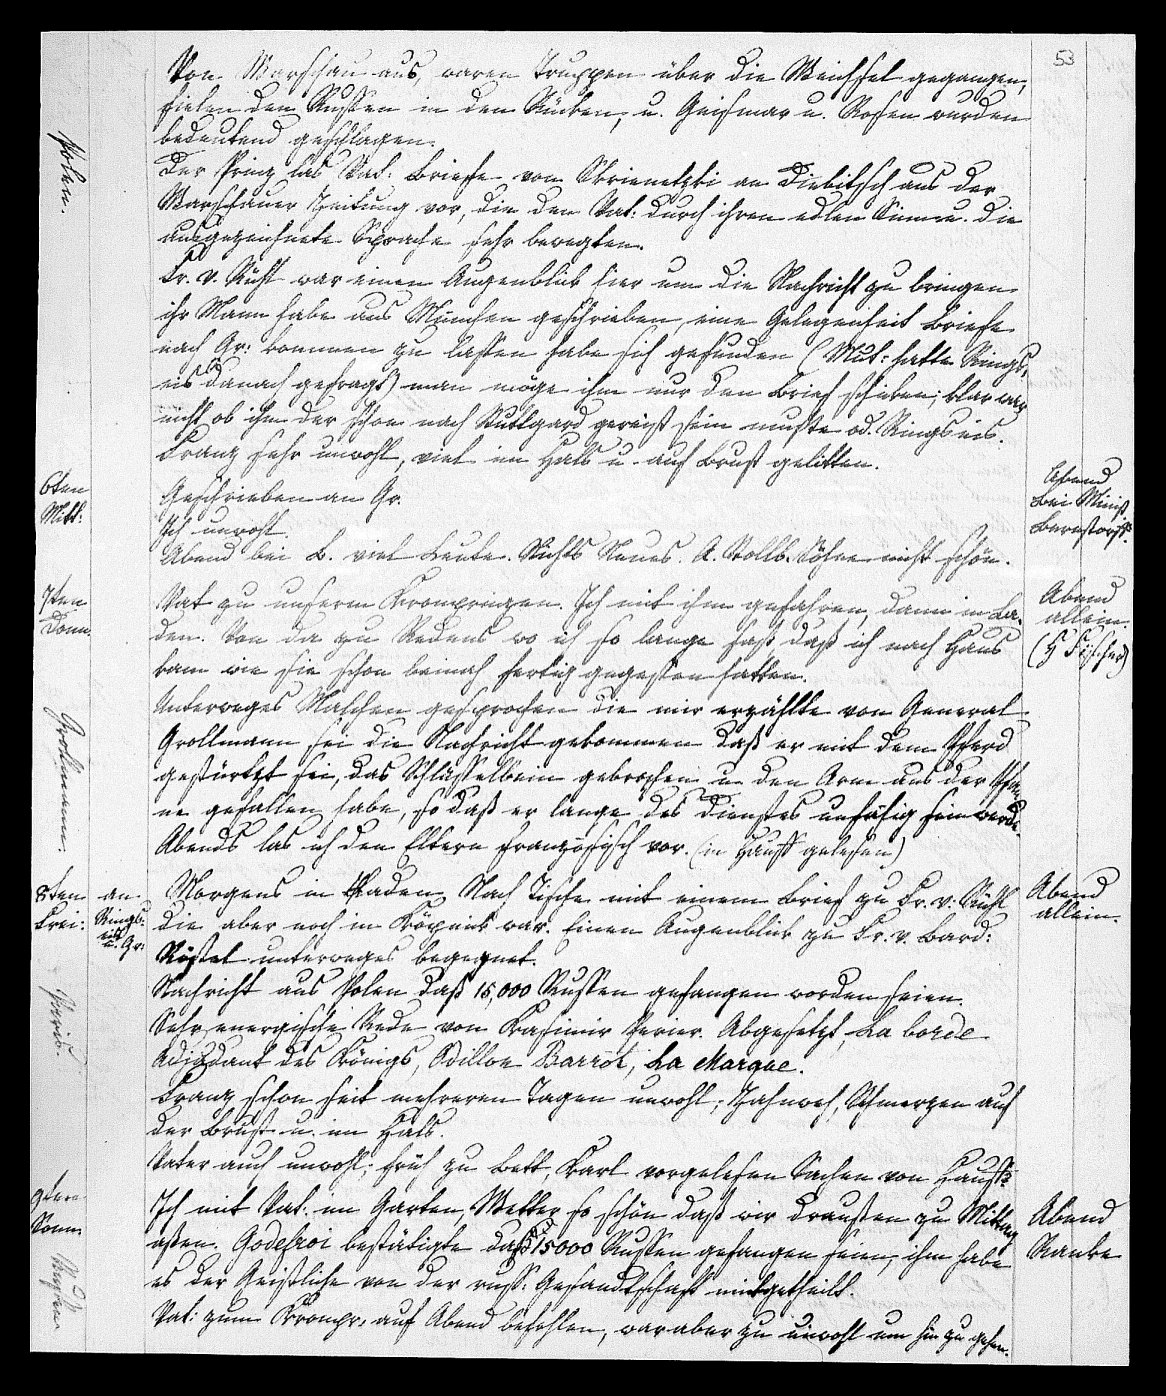 53
Von Warschau aus, waren Truppen über die Weichsel gegangen,
fielen den Russen in den Rücken, u. Geismar u. Rosen wurden
bedeutend geschlagen.
Polen.
Der Prinz las Vat: Briefe von Skrienetzki an Diebitsch aus der
Warschauer Zeitung vor, die den Vat: durch ihren edlen Sinn u. die
ausgezeichnete Sprache sehr bewegten.
Fr. v. Rühl war einen Augenblick hier um die Nachricht zu bringen
ihr Mann habe aus München geschrieben, eine Gelegenheit Briefe
nach Gr: kommen zu lassen habe sich gefunden (Mut: hatte Rings,
eis danach gefragt) man möge ihm nur den Brief schicken; klar war
nicht ob ihn der schon nach Stuttgard gereist sein mußte od. Ringseis.
Franz sehr unwohl, viel im Hals u. auf Brust gelitten.
6ten
Mitt:
Geschrieben an Gr.
Ich unwohl.
Abend bei B. viel Leute. Nichts Neues. A. Stollb. Söhne nicht schön.
Abend
bei Minist
Bernstorff.
7ten
Donn.
Vat zu unserm Kronprinzen. Ich mit ihm gefahren, dann in La,
den. Von da zu Redens wo ich so lange saß, daß ich nach Haus
kam wie sie schon beinah fertig gegessen hatten.
Abend
allein.
(H Fischer)
Unterweges Malchen gesprochen die mir erzählte von General
Grollmann sei die Nachricht gekommen daß er mit dem Pferd
gestürtzt sei, das Schlüsselbein gebrochen u den Arm aus der Pfan
ne gefallen habe, so daß er lange des Dienstes unfähig sein werde.
Abends las ich den Eltern französisch vor. (in Hauff gelesen)
Grolmann.
8ten
Frei:
an
Rings:
eis
u. Gr.
Morgens in Laden. Nach Tische mit einem Brief zu Fr. v. Rühl
die aber noch in Köpenik war. Einen Augenblick zu Fr. v. Bard:
Röstel unterweges begegnet.
Abend
allein.
Nachricht aus Polen daß 15,000 Russen gefangen worden seien.
Sehr energische Rede von Kasimir Perier. Abgesetzt, La borde
Adjudant des Königs, Odillon Barrot, La Marque.
Franz schon seit mehreren Tagen unwohl; Zahnweh, Schmerzen auf
der Brust u. im Hals.
Vater auch unwohl; früh zu Bett, Karl vorgelesen Sachen von Hauff.
Paris.
9ten
Sonn.
Ich mit Vat. im Garten, Wetter so schön daß wir draußen zu Mittag
aßen. Godefroi bestätigte daß 15000 Russen gefangen seien, ihm habe
es der Geistliche von der russ: Gesandtschaft mitgetheilt.
Vat: zum Kronpr. auf Abend befohlen, war aber zu unwohl um hin zu gehen.
Abend
Ranke